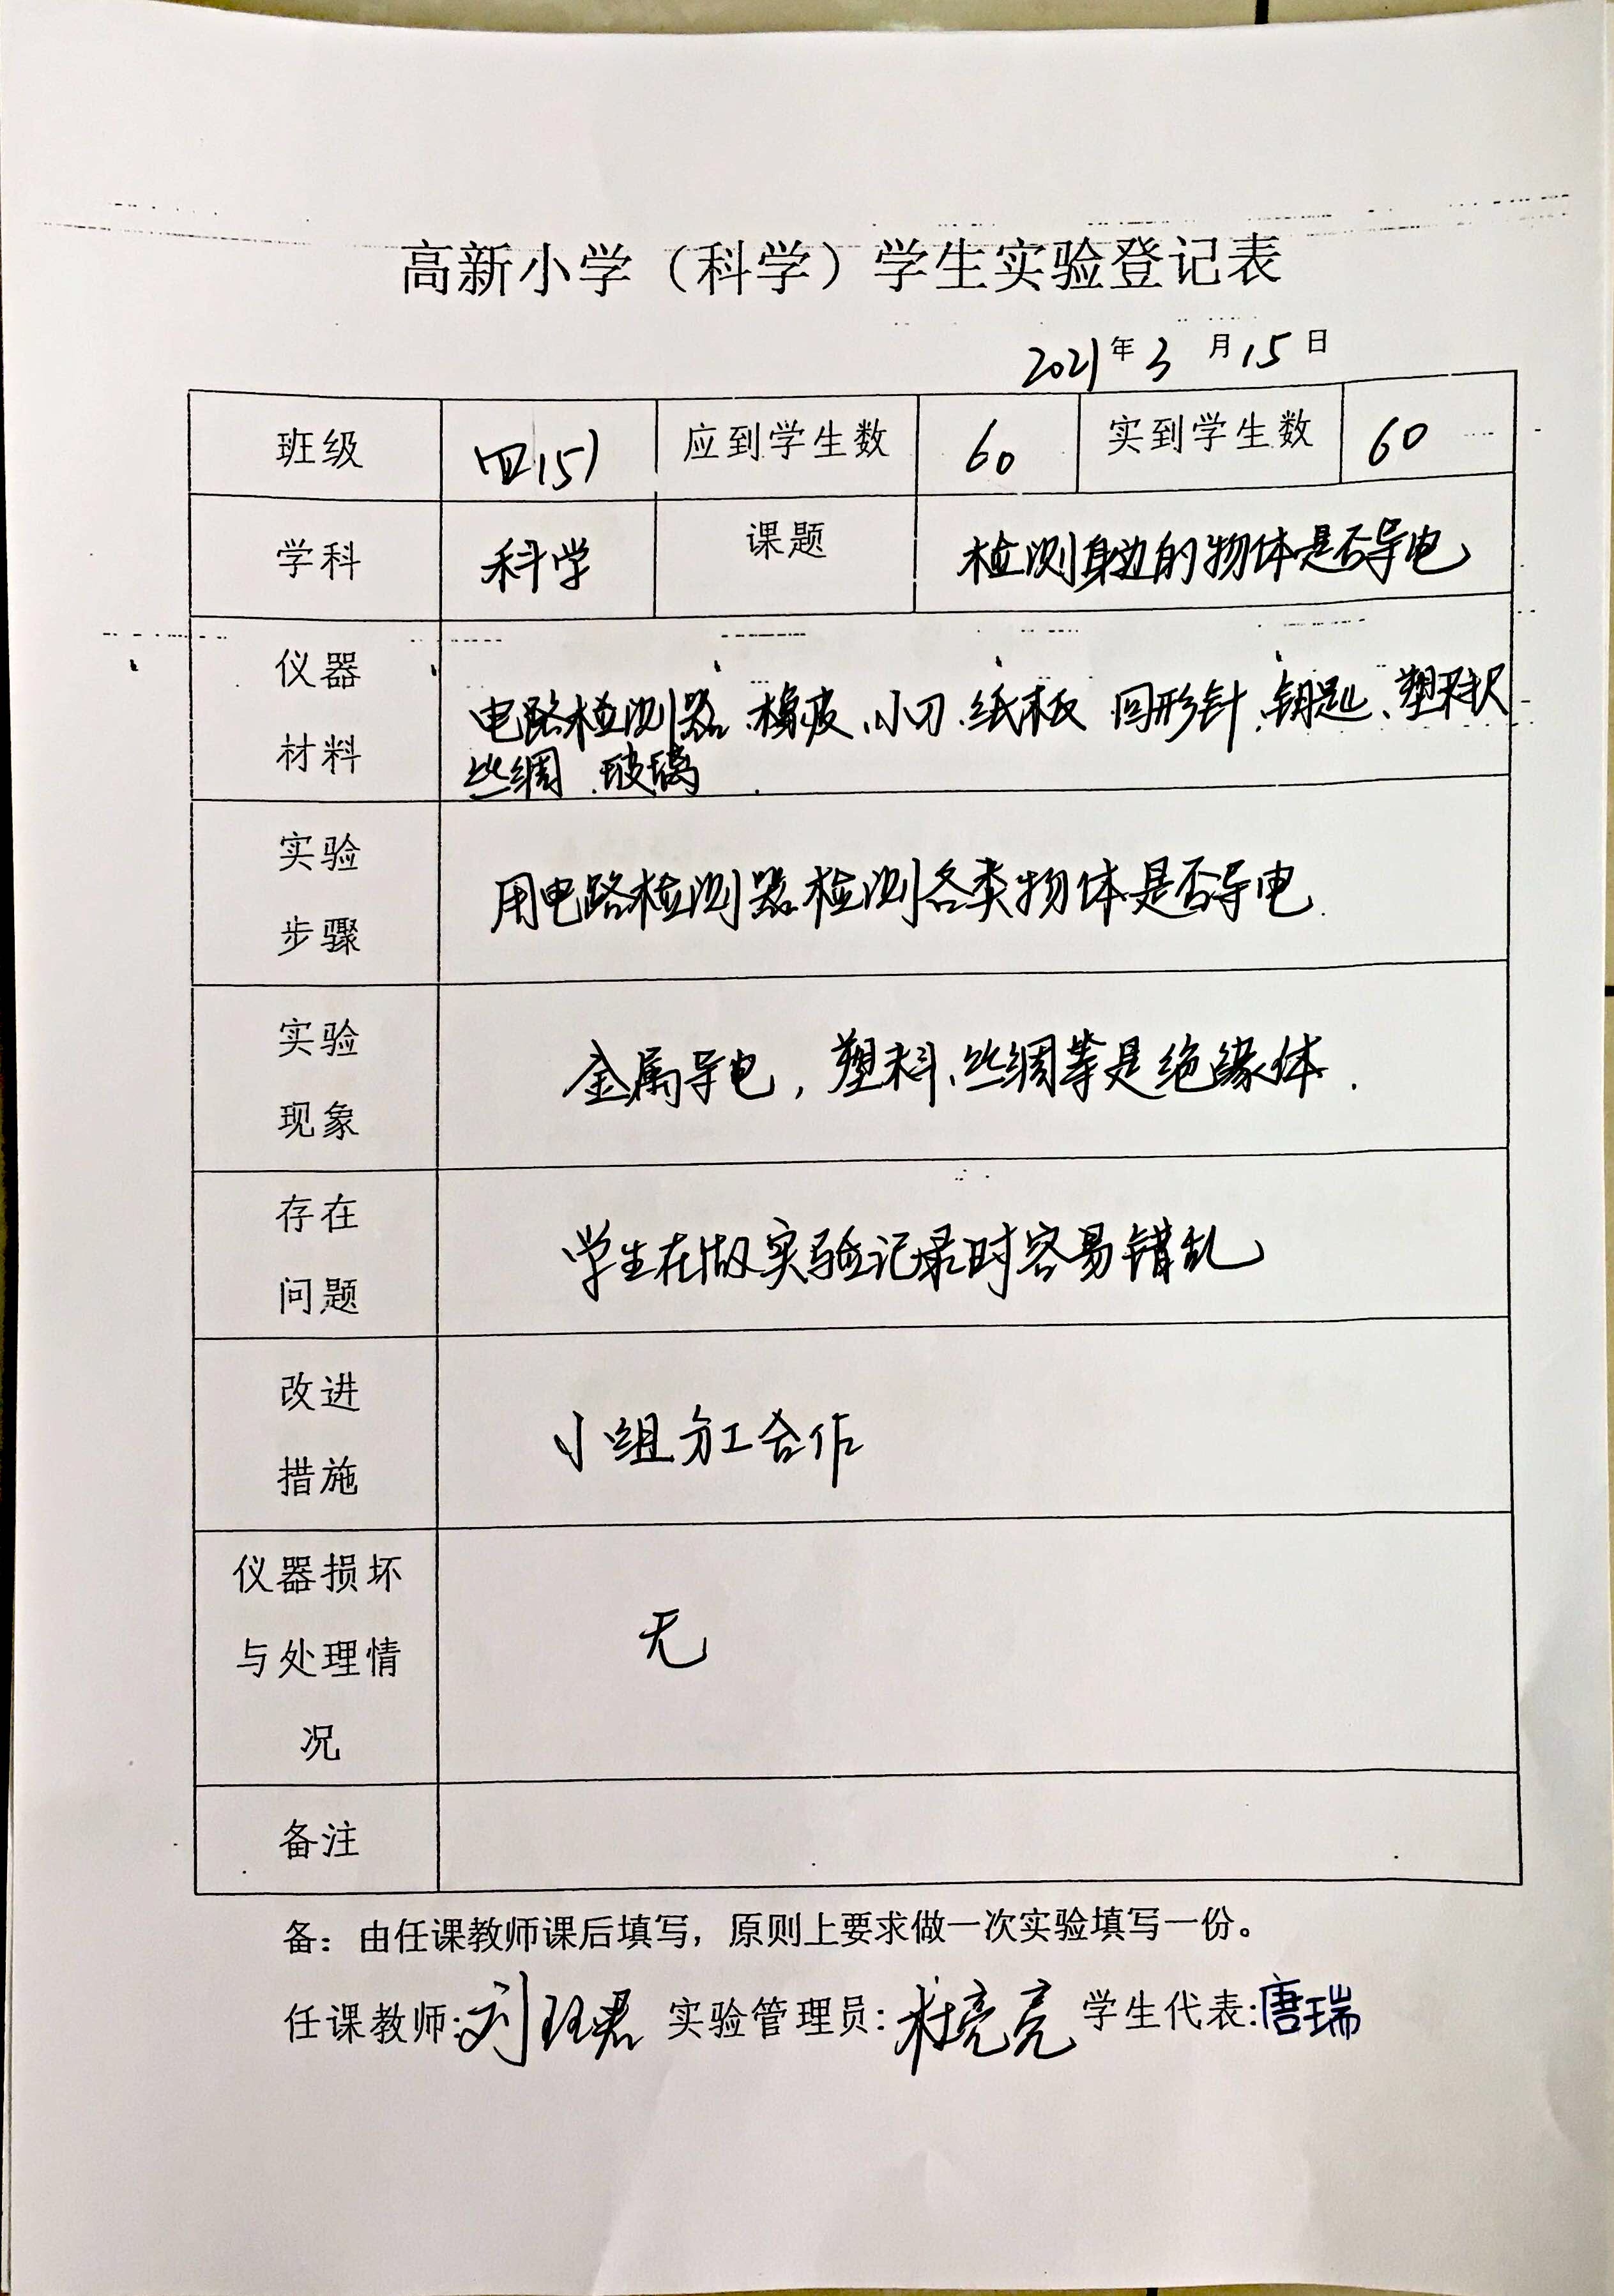 高新小学（科学）学生实验登记表
2021年3月15日
班级 四(5) 应到学生数 60 实到学生数 60
学科 科学 课题 检测身边的物体是否导电
仪器
材料
电路检测器、橡皮、小刀、纸板 回形针、钥匙、塑料尺
丝绸、玻璃
实验
步骤
用电路检测器检测各类物体是否导电.
实验
现象
金属导电，塑料、丝绸等是绝缘体.
存在
问题
学生在做实验记录时容易错乱
改进
措施
小组分工合作
仪器损坏
与处理情
况
无
备注
备：由任课教师课后填写，原则上要求做一次实验填写一份。
任课教师:刘 君 实验管理员:杜亮亮 学生代表:唐瑞